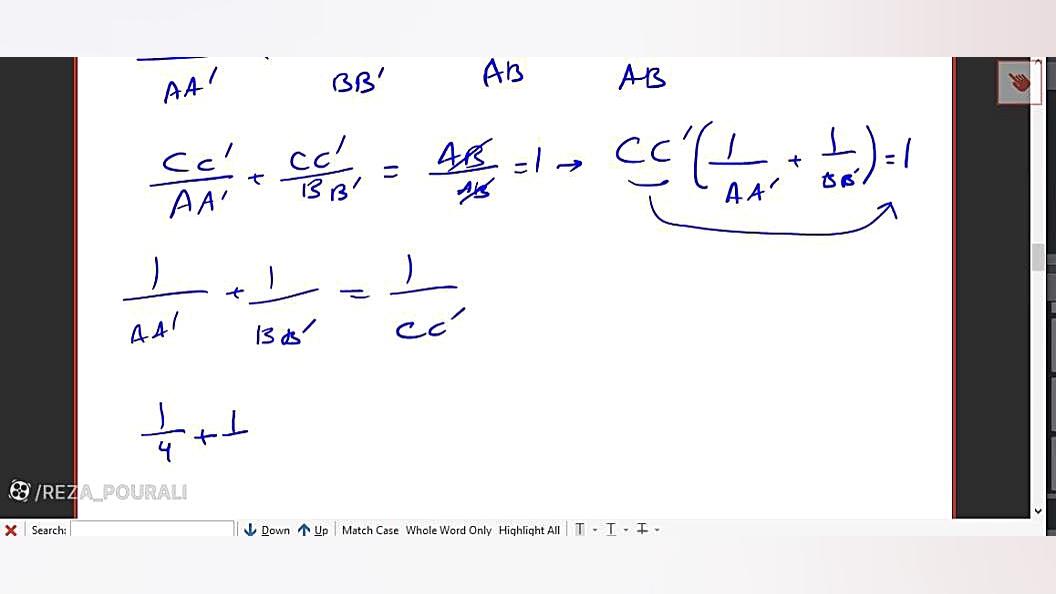 AA′ BB′ AB AB
CC′/AA′ + CC′/BB′ = AB/AB = 1 → CC′(1/AA′ + 1/BB′) = 1
1/AA′ + 1/BB′ = 1/CC′
1/4 + 1
/REZA_POURALI
Search: Down Up Match Case Whole Word Only Highlight All T T T